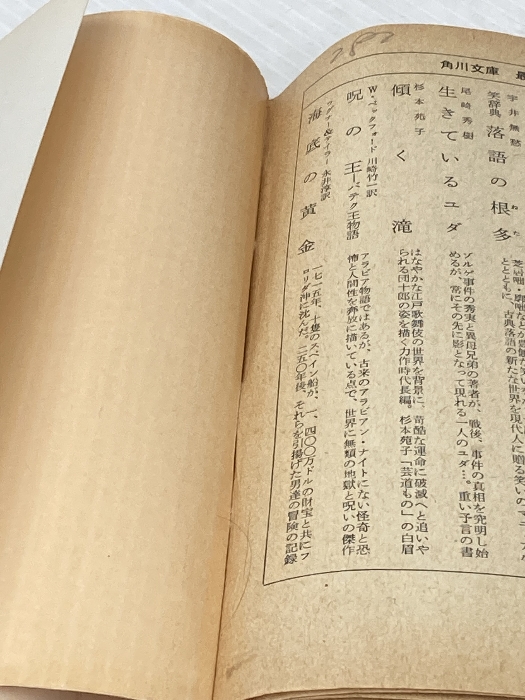 角川文庫
宇井無愁
笑辞典 落語の根多
ねた
とともに、古典落語の新たな世界を現代人に贈る笑いの
尾崎秀樹
生きているユダ
ゾルゲ事件の秀実と異母兄弟の著者が、戦後、事件の真相を究明し始
めるが、常にその先に影となって現れる一人のユダ…。重い予言の書
杉本苑子
傾く滝
はなやかな江戸歌舞伎の世界を背景に、苛酷な運命に破滅へと追いや
られる団十郎の姿を描く力作時代長編。杉本苑子「芸道もの」の白眉
W・ベックフォード 川崎竹一訳
呪の王―バテク王物語
アラビア物語ではあるが、古来のアラビアン・ナイトにない怪奇と恐
怖と人間性を奔放に描いている点で、世界に無類の地獄と呪いの傑作
ワグナー&テイラー 永井淳訳
海底の黄金
一七一五年、十隻のスペイン船が、一、四〇〇万ドルの財宝と共にフ
ロリダ沖に沈んだ。二五〇年後、それらを引揚げた男達の冒険の記録